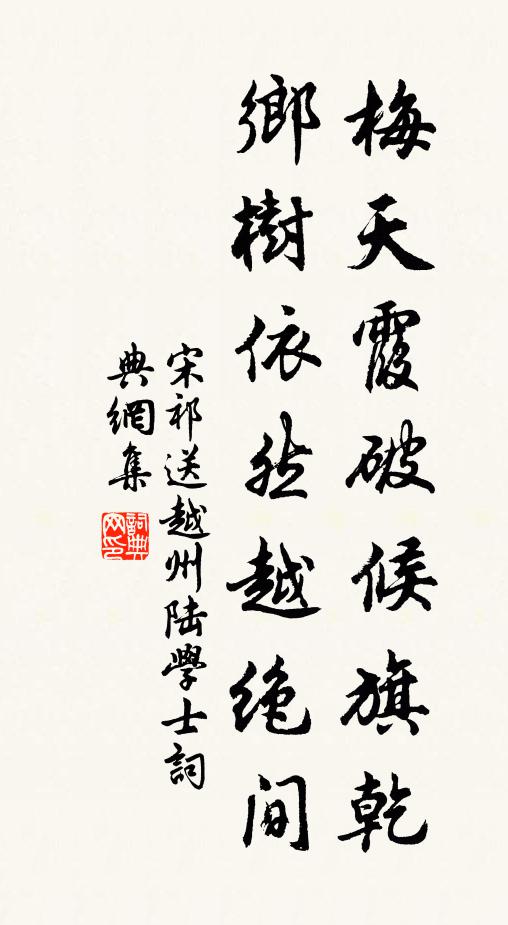 梅天霞破候旗乾
鄉樹依然越絶間
宋祁送越州陸學士詞
典網集
詞典
网印